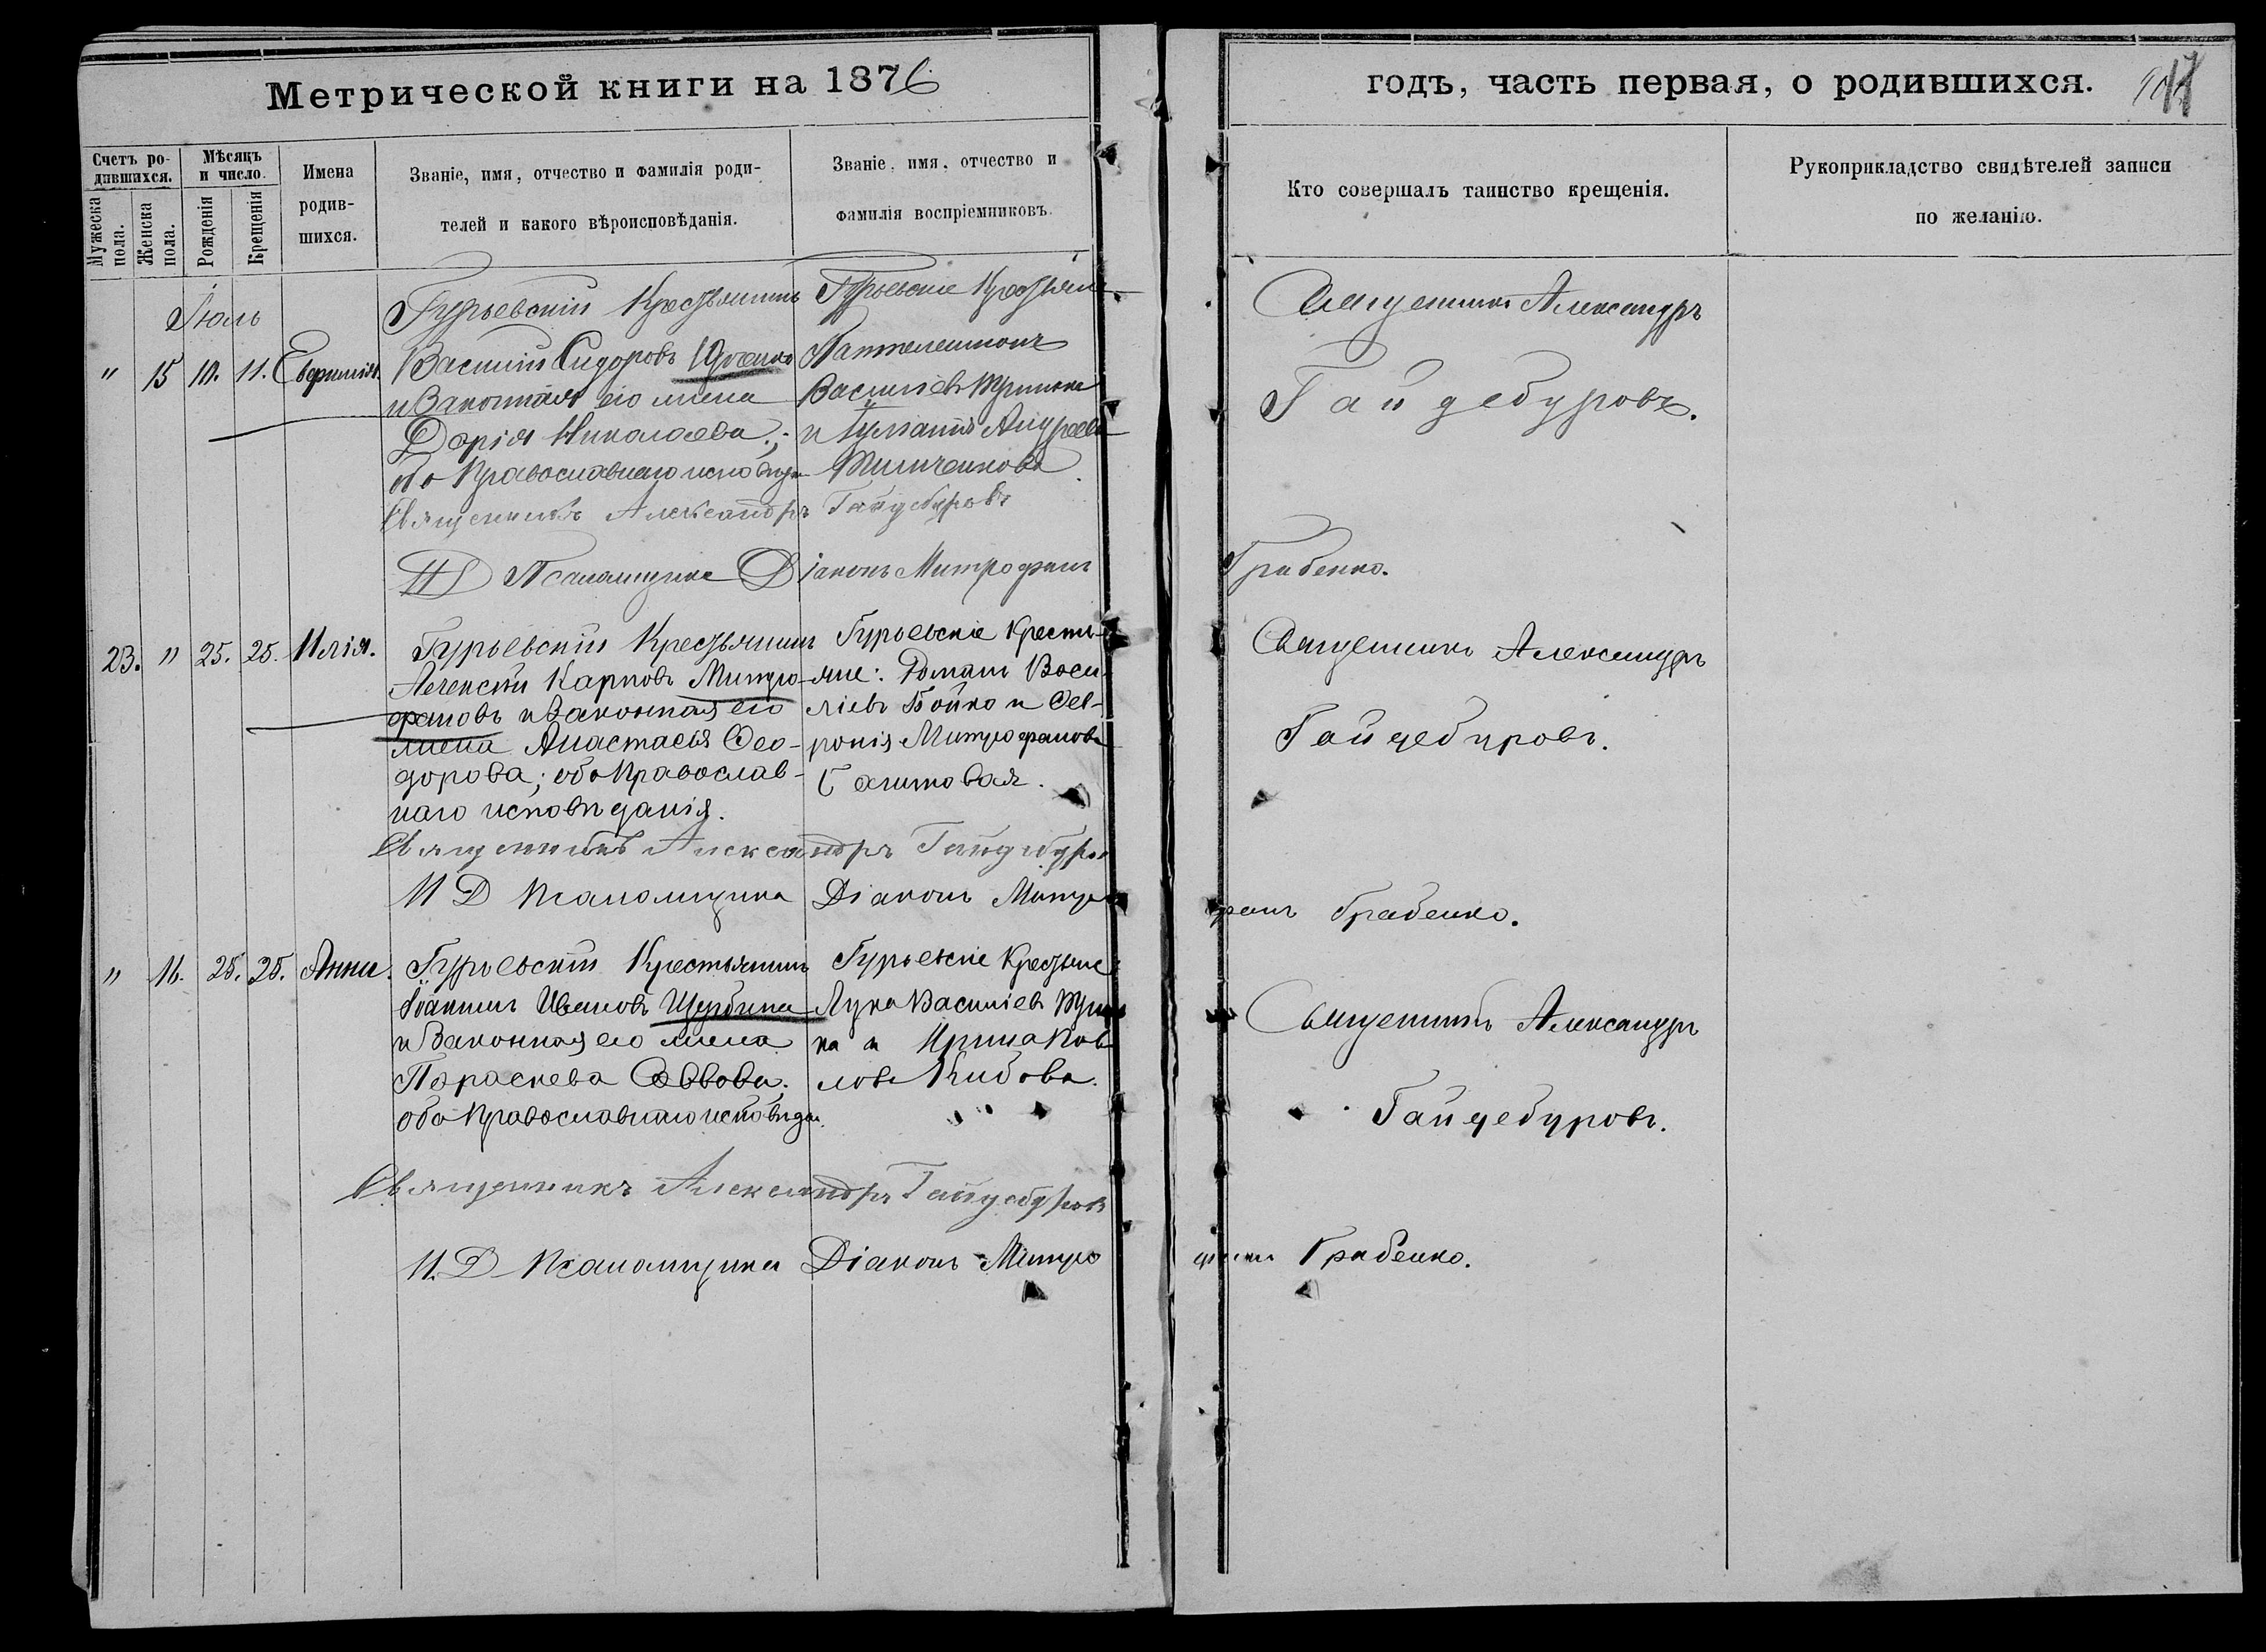 Метрической книги на 1876
годъ, часть первая, о родившихся.
Счетъ ро-
дившихся.
Мужеска пола.
Женска пола.
Мѣсяцъ
и число.
Рожденія
Крещенія
Имена
родив-
шихся.
Званіе, имя, отчество и фамилія роди-
телей и какого вѣроисповѣданія.
Званіе, имя, отчество и
фамилія воспріемниковъ.
Кто совершалъ таинство крещенія.
Рукоприкладство свидѣтелей записи
по желанію.
Іюль
" 15 10. 11. Евфимія.
Гурьевскій Крестьянинъ
Василій Сидоровъ Юрченко
и Законная его жена
Дарія Николаева;
оба Православнаго исповѣда
Гурьевскіе Крестьяне
Пантелеимонъ
Василіевъ
и Андреева
Священникъ Александръ
Гайдебуровъ.
Священникъ Александръ Гайдебуровъ
ИД Псаломщика Діаконъ Митрофанъ
Грабенко.
23. " 25. 25. Илія.
Гурьевскій Крестьянинъ
Алексѣй Карповъ Митро-
фановъ и Законная его
жена Анастасія Ѳео-
дорова; оба Православ-
наго исповѣданія.
Гурьевскіе Кресть-
яне: Романъ Васи-
ліевъ Бойко и Фев-
ронія Митрофанова
Священникъ Александръ
Гайдебуровъ.
Священникъ Александръ Гайдебуров
И Д Псаломщика Діаконъ Митро
фанъ Грабенко.
" 16. 25. 25. Анна.
Гурьевскій Крестьянинъ
Іоакимъ Ивановъ Щербина
и Законная его жена
Параскева Саввова.
оба Православнаго исповѣда.
Гурьевскіе Крестьяне
Лука Василіевъ
ка и Ирина Пав
лова
Священникъ Александръ
Гайдебуровъ.
Священникъ Александръ Гайдебуров
И.Д Псаломщика Діаконъ Митро
фанъ Грабенко.